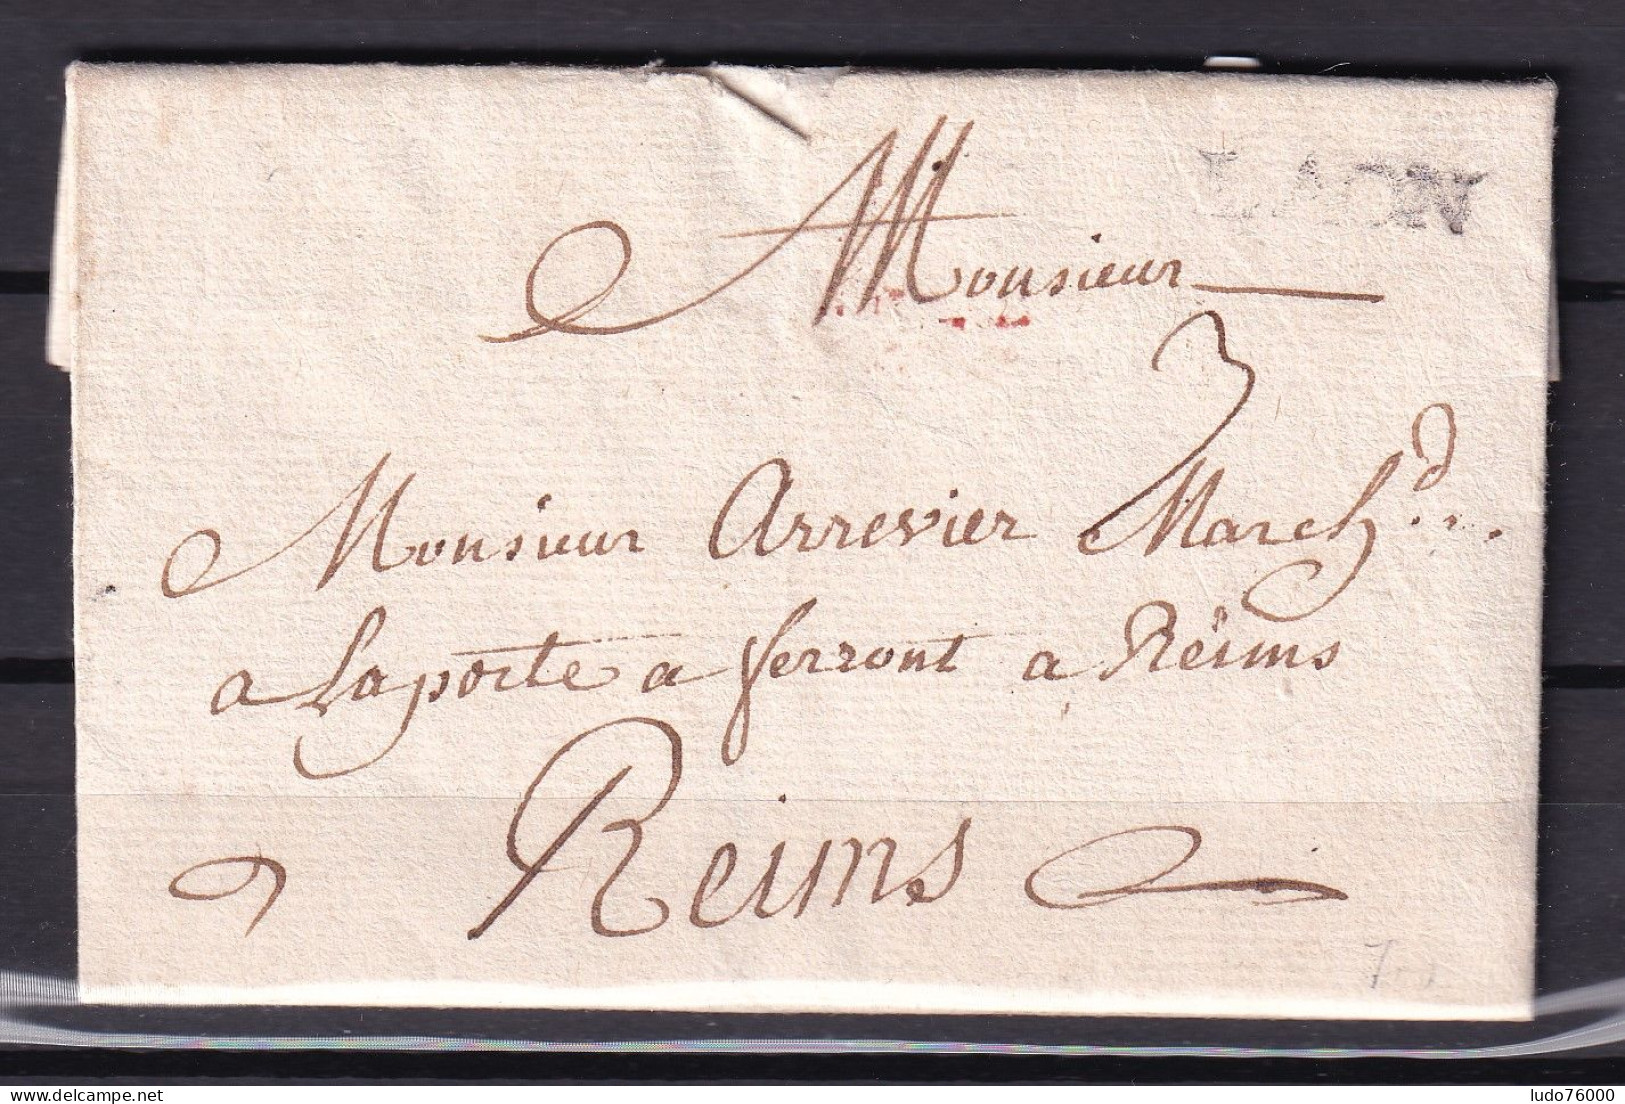 LAON
Monsieur
3
Monsieur Arrevier March.d
a Laporte a ferront a Rëims
Reims
delcampe.net
ludo76000